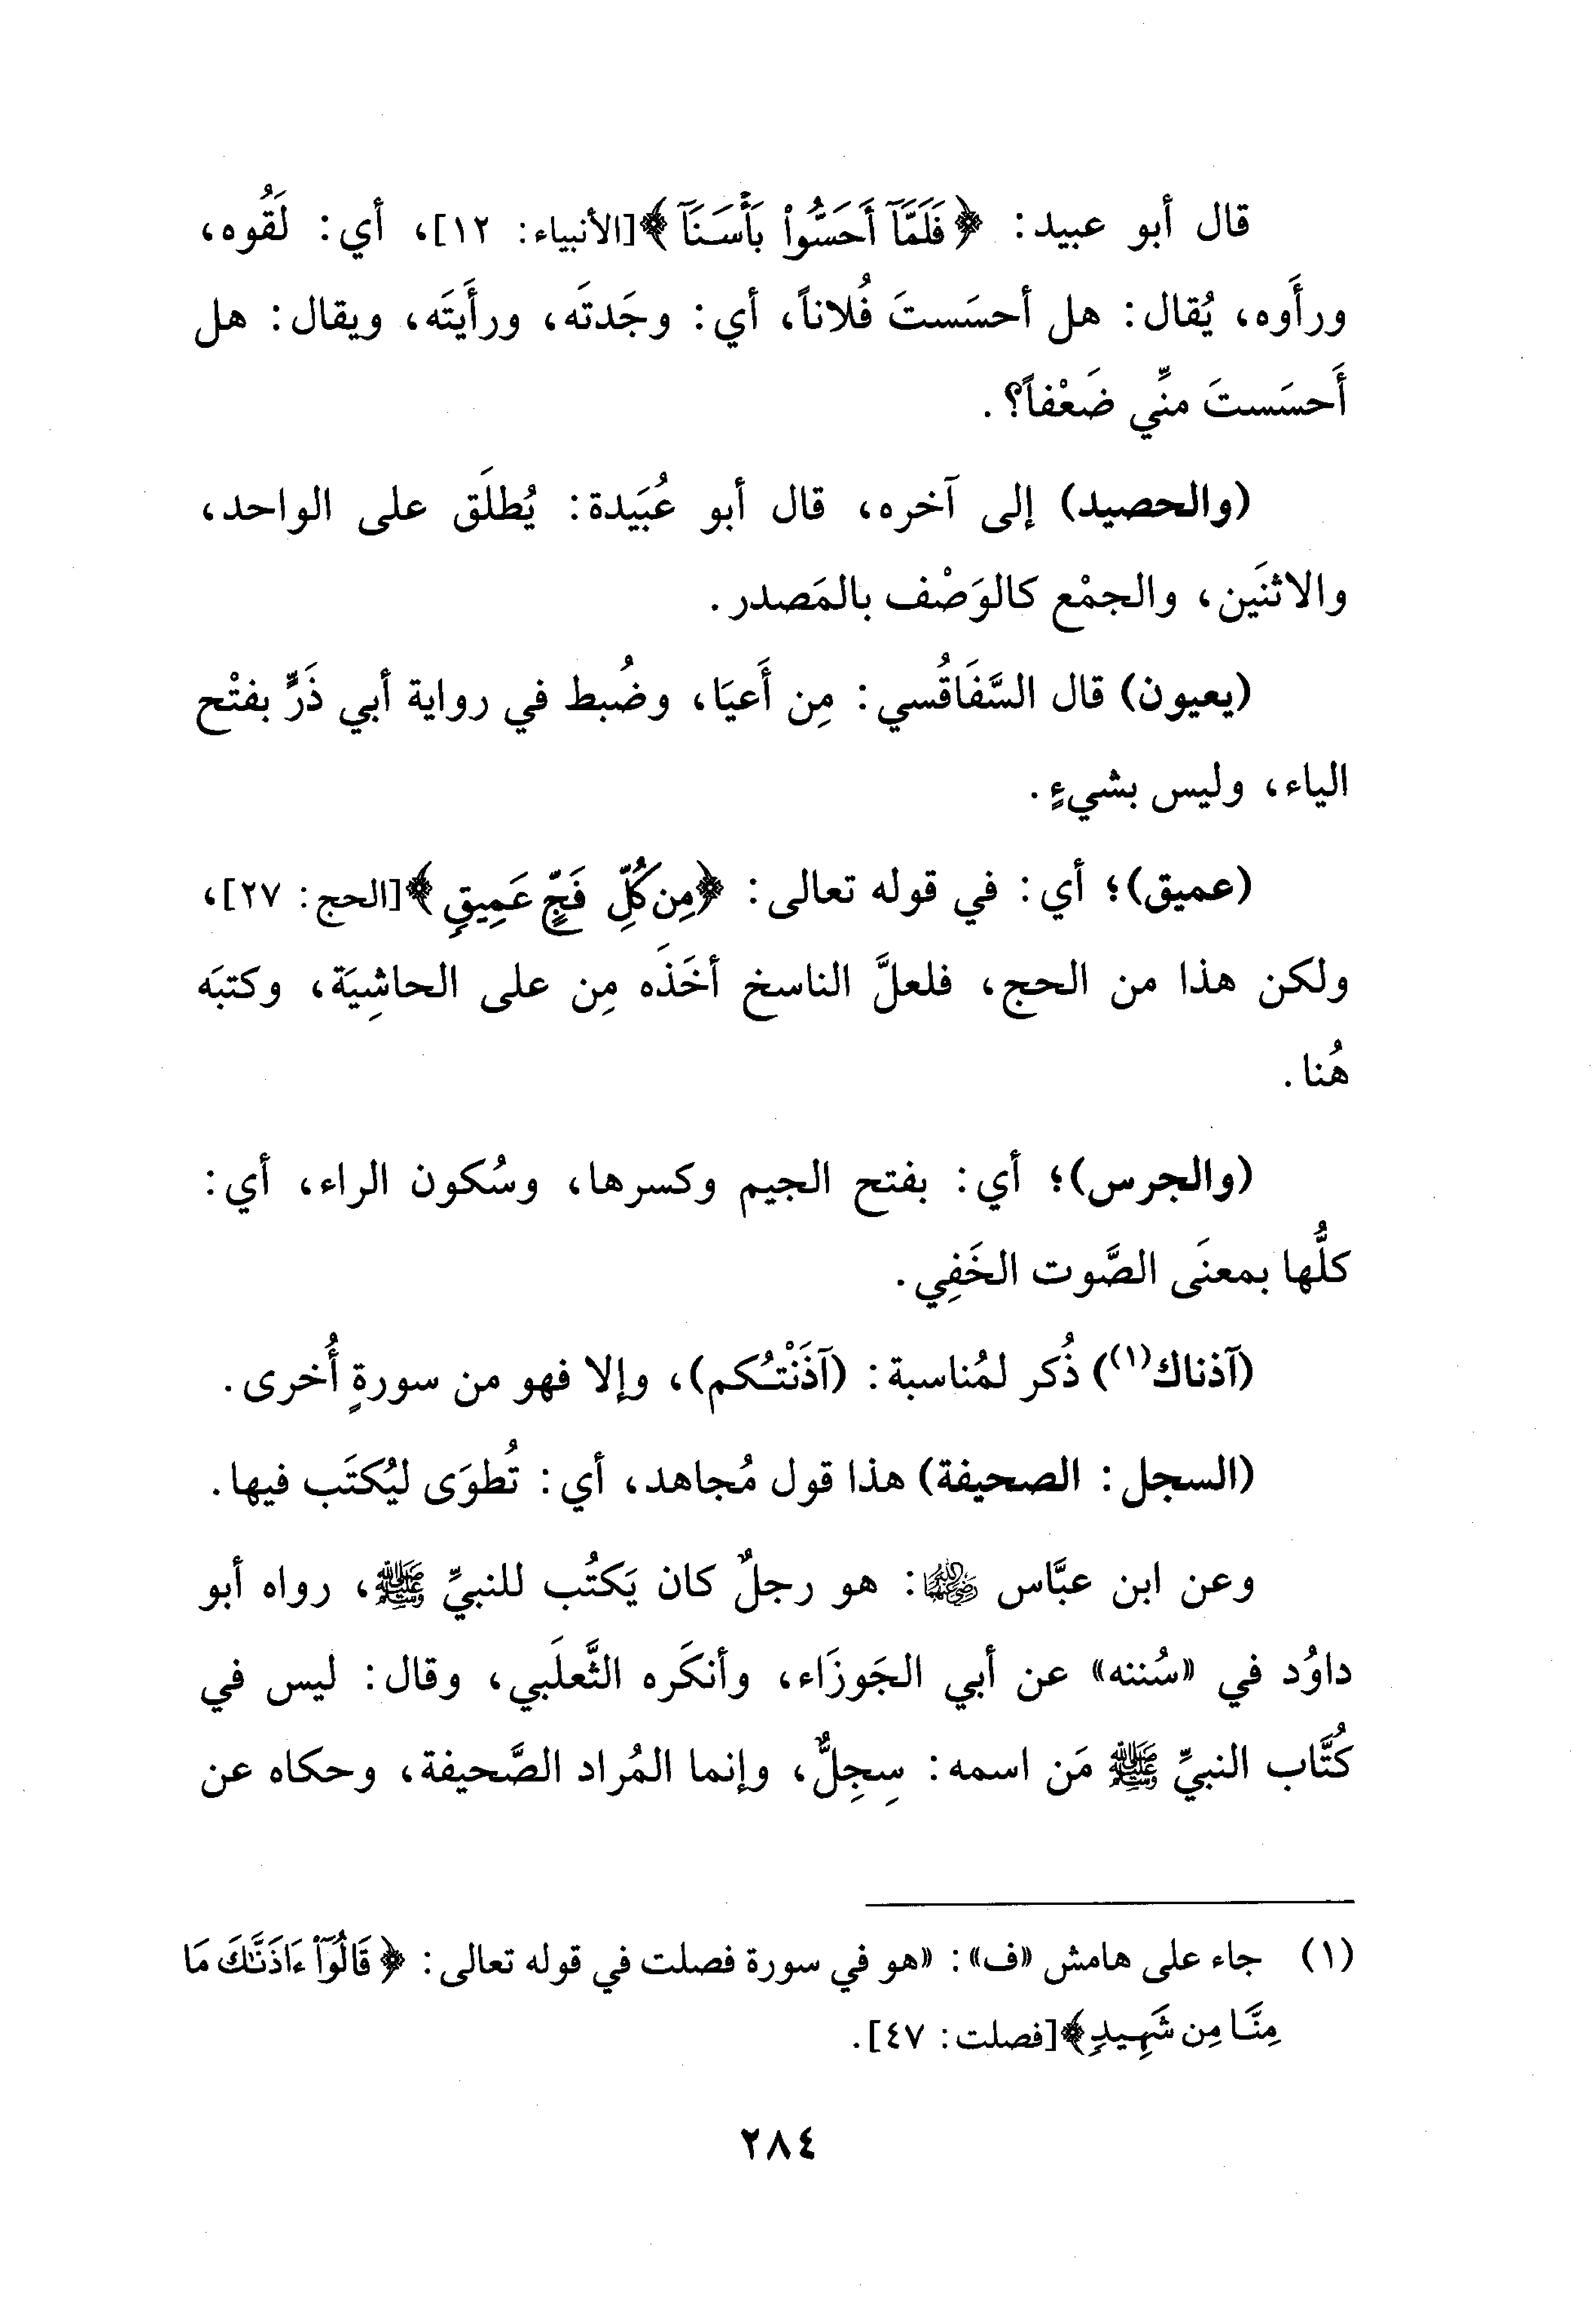 قال أبو عبيد: ﴿فَلَمَّآ أَحَسُّوا۟ بَأْسَنَآ﴾[الأنبياء: ١٢]، أي: لَقُوه،
ورأَوه، يُقال: هل أحسَستَ فُلاناً، أي: وجَدتَه، ورأَيتَه، ويقال: هل
أَحسَستَ منِّي ضَعْفاً؟.
(والحصيد) إلى آخره، قال أبو عُبَيدة: يُطلَق على الواحد،
والاثنَين، والجمْع كالوَصْف بالمَصدر.
(يعيون) قال السَّفَاقُسي: مِن أَعيَا، وضُبط في رواية أبي ذَرٍّ بفتْح
الياء، وليس بشيءٍ.
(عميق)؛ أي: في قوله تعالى: ﴿مِن كُلِّ فَجٍّ عَمِيقٍ﴾[الحج: ٢٧]،
ولكن هذا من الحج، فلعلَّ الناسخ أخَذَه مِن على الحاشِيَة، وكتبَه
هُنا.
(والجرس)؛ أي: بفتح الجيم وكسرها، وسُكون الراء، أي:
كلُّها بمعنَى الصَّوت الخَفِي.
(آذناك(١)) ذُكر لمُناسبة: (آذَنْتُكم)، وإلا فهو من سورةٍ أُخرى.
(السجل: الصحيفة) هذا قول مُجاهد، أي: تُطوَى ليُكتَب فيها.
وعن ابن عبَّاس رضي الله عنهما: هو رجلٌ كان يَكتُب للنبيِّ ﷺ، رواه أبو
داوُد في «سُننه» عن أبي الجَوزَاء، وأنكَره الثَّعلَبي، وقال: ليس في
كُتَّاب النبيِّ ﷺ مَن اسمه: سِجِلٌّ، وإنما المُراد الصَّحيفة، وحكاه عن
(١) جاء على هامش «ف»: «هو في سورة فصلت في قوله تعالى: ﴿قَالُوٓا۟ ءَاذَنَّٰكَ مَا
مِنَّا مِن شَهِيدٍ﴾[فصلت: ٤٧].
٢٨٤